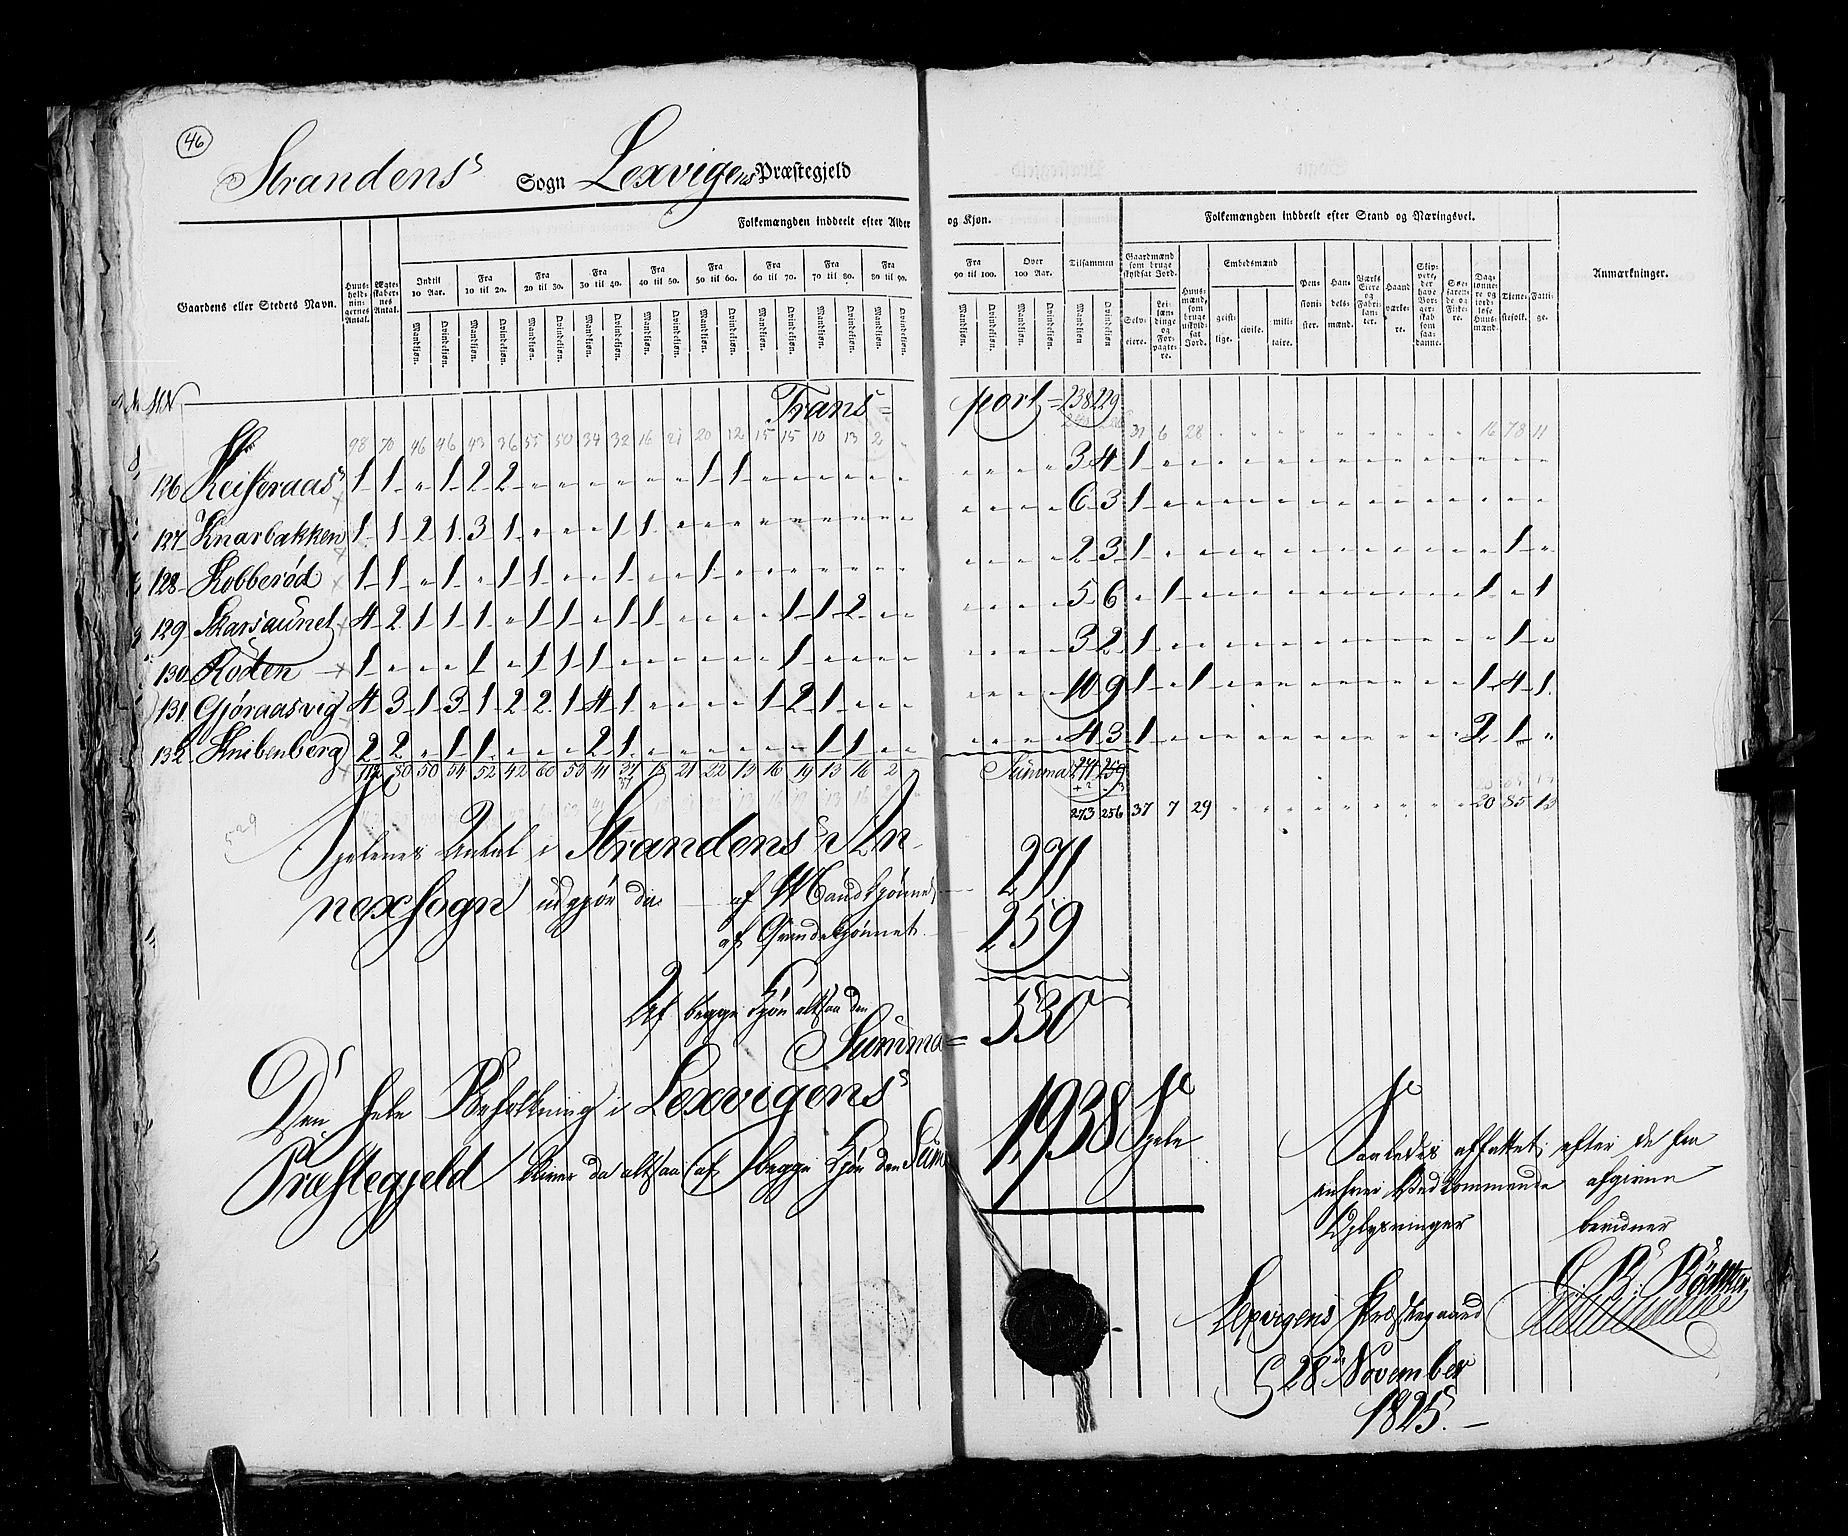 46
Strandens Sogn Lexvigens Præstegjeld
Gaardens eller Stedets Navn.
Huus-holdningernes Antal.
Ægteskabernes Antal.
Folkemængden inddeelt efter Alder og Kjøn.
Indtil 10 Aar. Fra 10 til 20. Fra 20 til 30. Fra 30 til 40. Fra 40 til 50. Fra 50 til 60. Fra 60 til 70. Fra 70 til 80. Fra 80 til 90. Fra 90 til 100. Over 100 Aar. Tilsammen
Mandkjøn. Qvindekjøn.
Folkemængden inddeelt efter Stand og Næringsvei.
Gaardmænd som bruge skyldsat Jord.
Selveiere. Leilændinge og Forpagtere.
Huusmænd, som bruge uskyldsat Jord.
Embedsmænd
geistlige. civile. militaire.
Pensionister. Handelsmænd. Værks Eiere og Fabrikanter. Haandværkere. Slippere, der have Borgerskab som saadanne. Søefarende og Fiskere. Dagslønnere og jordløse Huusmænd. Tjenestefolk. Fattige.
Anmærkninger.
Transport = 238 229
98 70 46 46 43 36 55 50 34 32 16 21 20 12 15 15 10 13 2 31 6 28 16 78 11
126 Reiseraas 1 1 " 1 2 2 " " " " " " 1 1 " " " " " " 3 4 1
127 Knarbakken 1 1 2 1 3 1 " " " 1 1 " " " " " " " " " 6 3 1
128 Kobberød 1 1 " 1 " 1 1 " " 1 " " 1 " " " " " " " 2 3 1 1
129 Skarsaunet 4 2 1 1 1 " 1 1 " 1 1 " " " " 1 1 2 " " 5 6 " 1 1 " 1
130 Røden 1 " " " 1 " 1 1 1 " " " " " " 1 " " " " 3 2 1 1
131 Gjøraasvig 4 3 1 3 1 2 2 1 4 1 " " " " 1 2 1 " " " 10 9 1 " 1 1 4 1
132 Knibenberg 2 2 " 1 1 " " " 2 1 " " " " " " 1 1 " " 4 3 1 2 1 "
112 80 50 54 52 42 60 53 41 37 18 21 22 13 16 19 13 16 2 Summa 271 259
273 256 37 7 29 20 85 13
529
Sjelenes Antal i Strandens An
nexsogn udgjør da af Mandkjønnet 271
af Qvindekjønnet 259
Af begge Kjøn altsaa den
Summa = 530
Den hele Befolkning i Lexvigens
Præstegjeld bliver da altsaa af begge Kjøn den Sum 1,938 Sjele
Saaledes affattet efter de fra
enhver Vedkommende afgivne
Oplysninger bevidner
Lexvigens Præstegaard
28 November
1825.